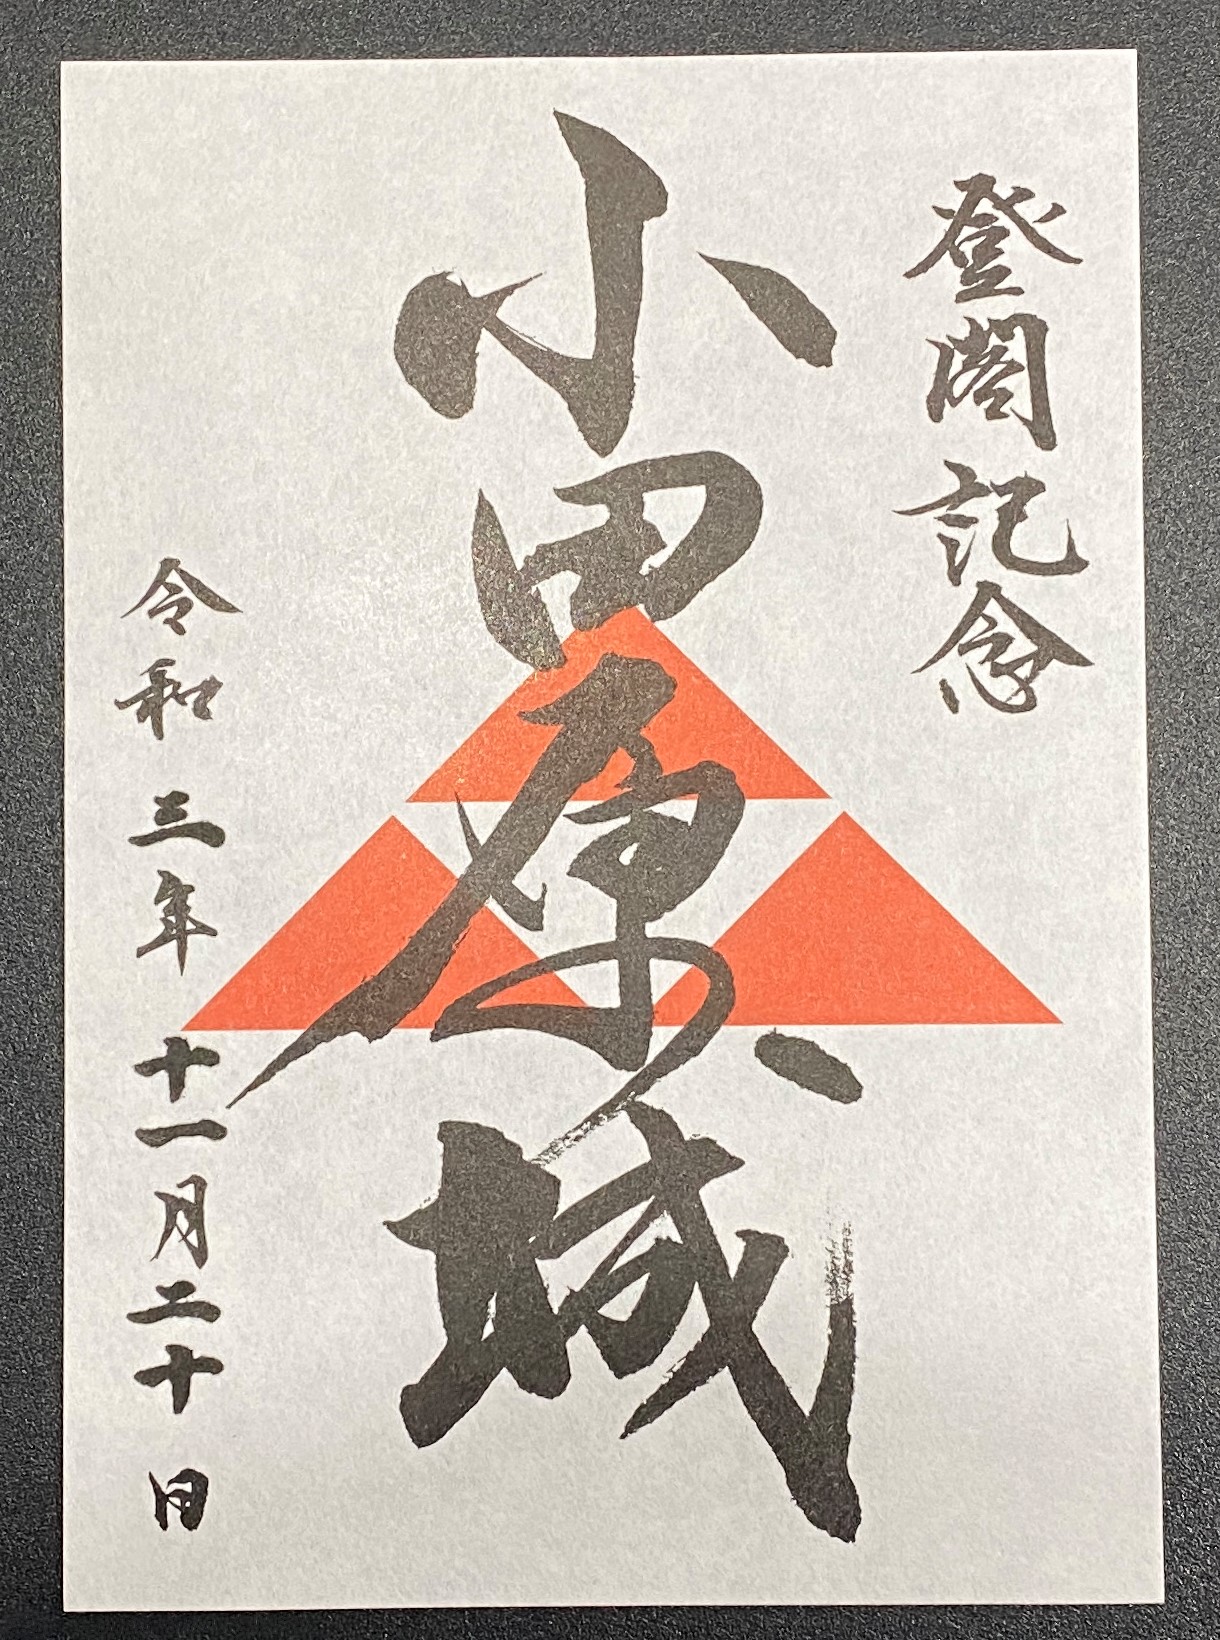 登閣記念
小田原城
令和三年十一月二十日